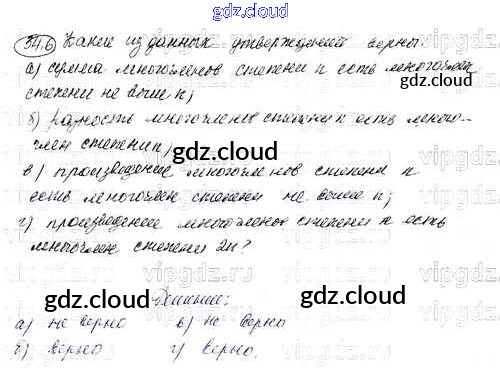 gdz.cloud
34.6 Какие из данных утверждений верны:
а) сумма многочленов степени n есть многочлен
gdz.cloud
степени не выше n;
б) разность многочленов степени n есть много-
член степени n;
gdz.cloud
в) произведение многочленов степени n
есть многочлен степени не выше n;
г) произведение многочленов степени n есть
многочлен степени 2n?
gdz.cloud
gdz.cloud
Решение:
а) не верно в) не верно
б) верно г) верно.